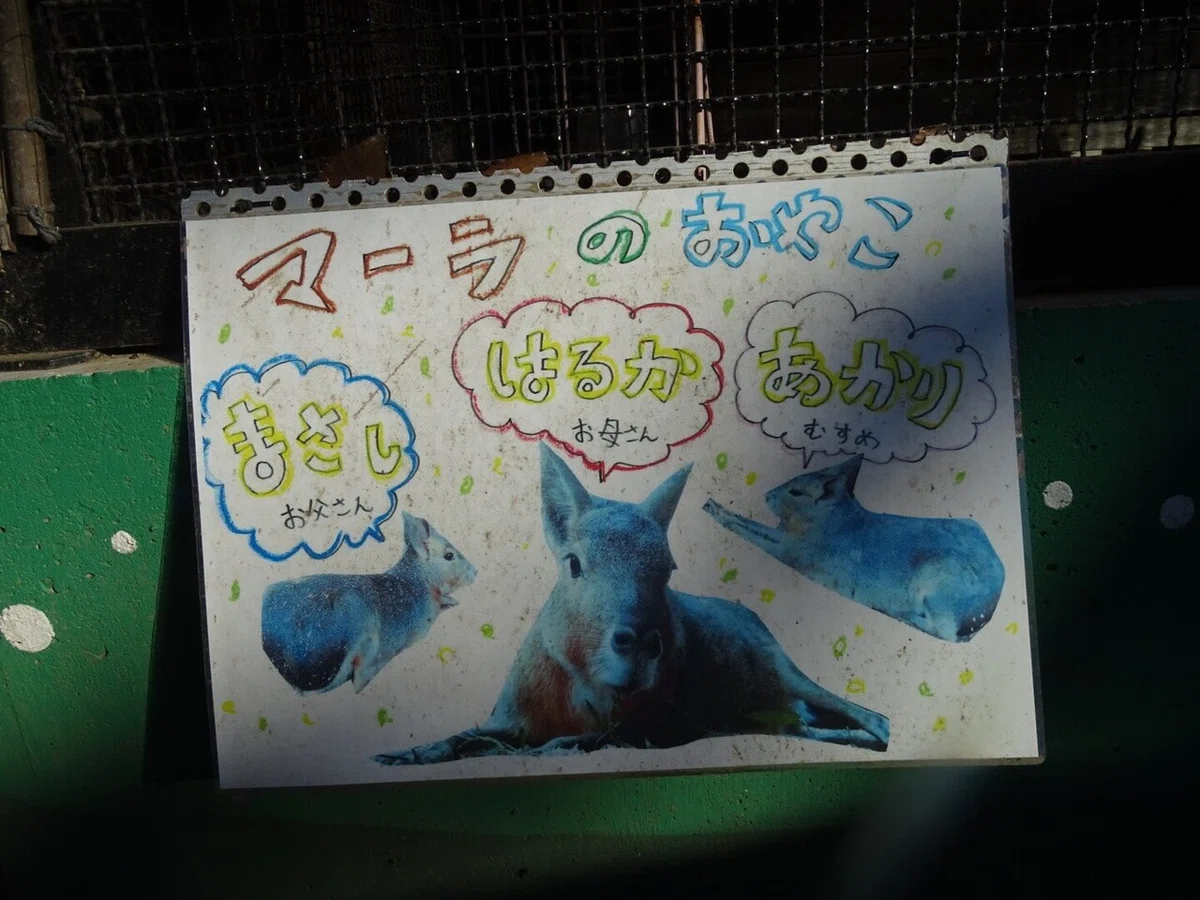 マーラのおやこ
まさし
お父さん
はるか
お母さん
あかり
むすめ